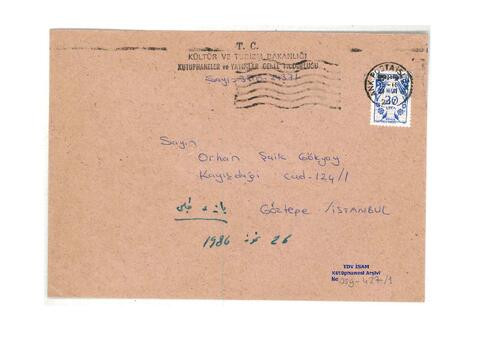 T. C.
KÜLTÜR VE TURİZM BAKANLIĞI
KÜTÜPHANELER ve YAYIMLAR GENEL MÜDÜRLÜĞÜ
Sayı:
ANK
20
Sayın
Orhan Şaik Gökyay
Kayışdağı Cad-124/1
Göztepe /İSTANBUL
26 تموز 1986
TDV İSAM
Kütüphanesi Arşivi
No OŞG-427/1